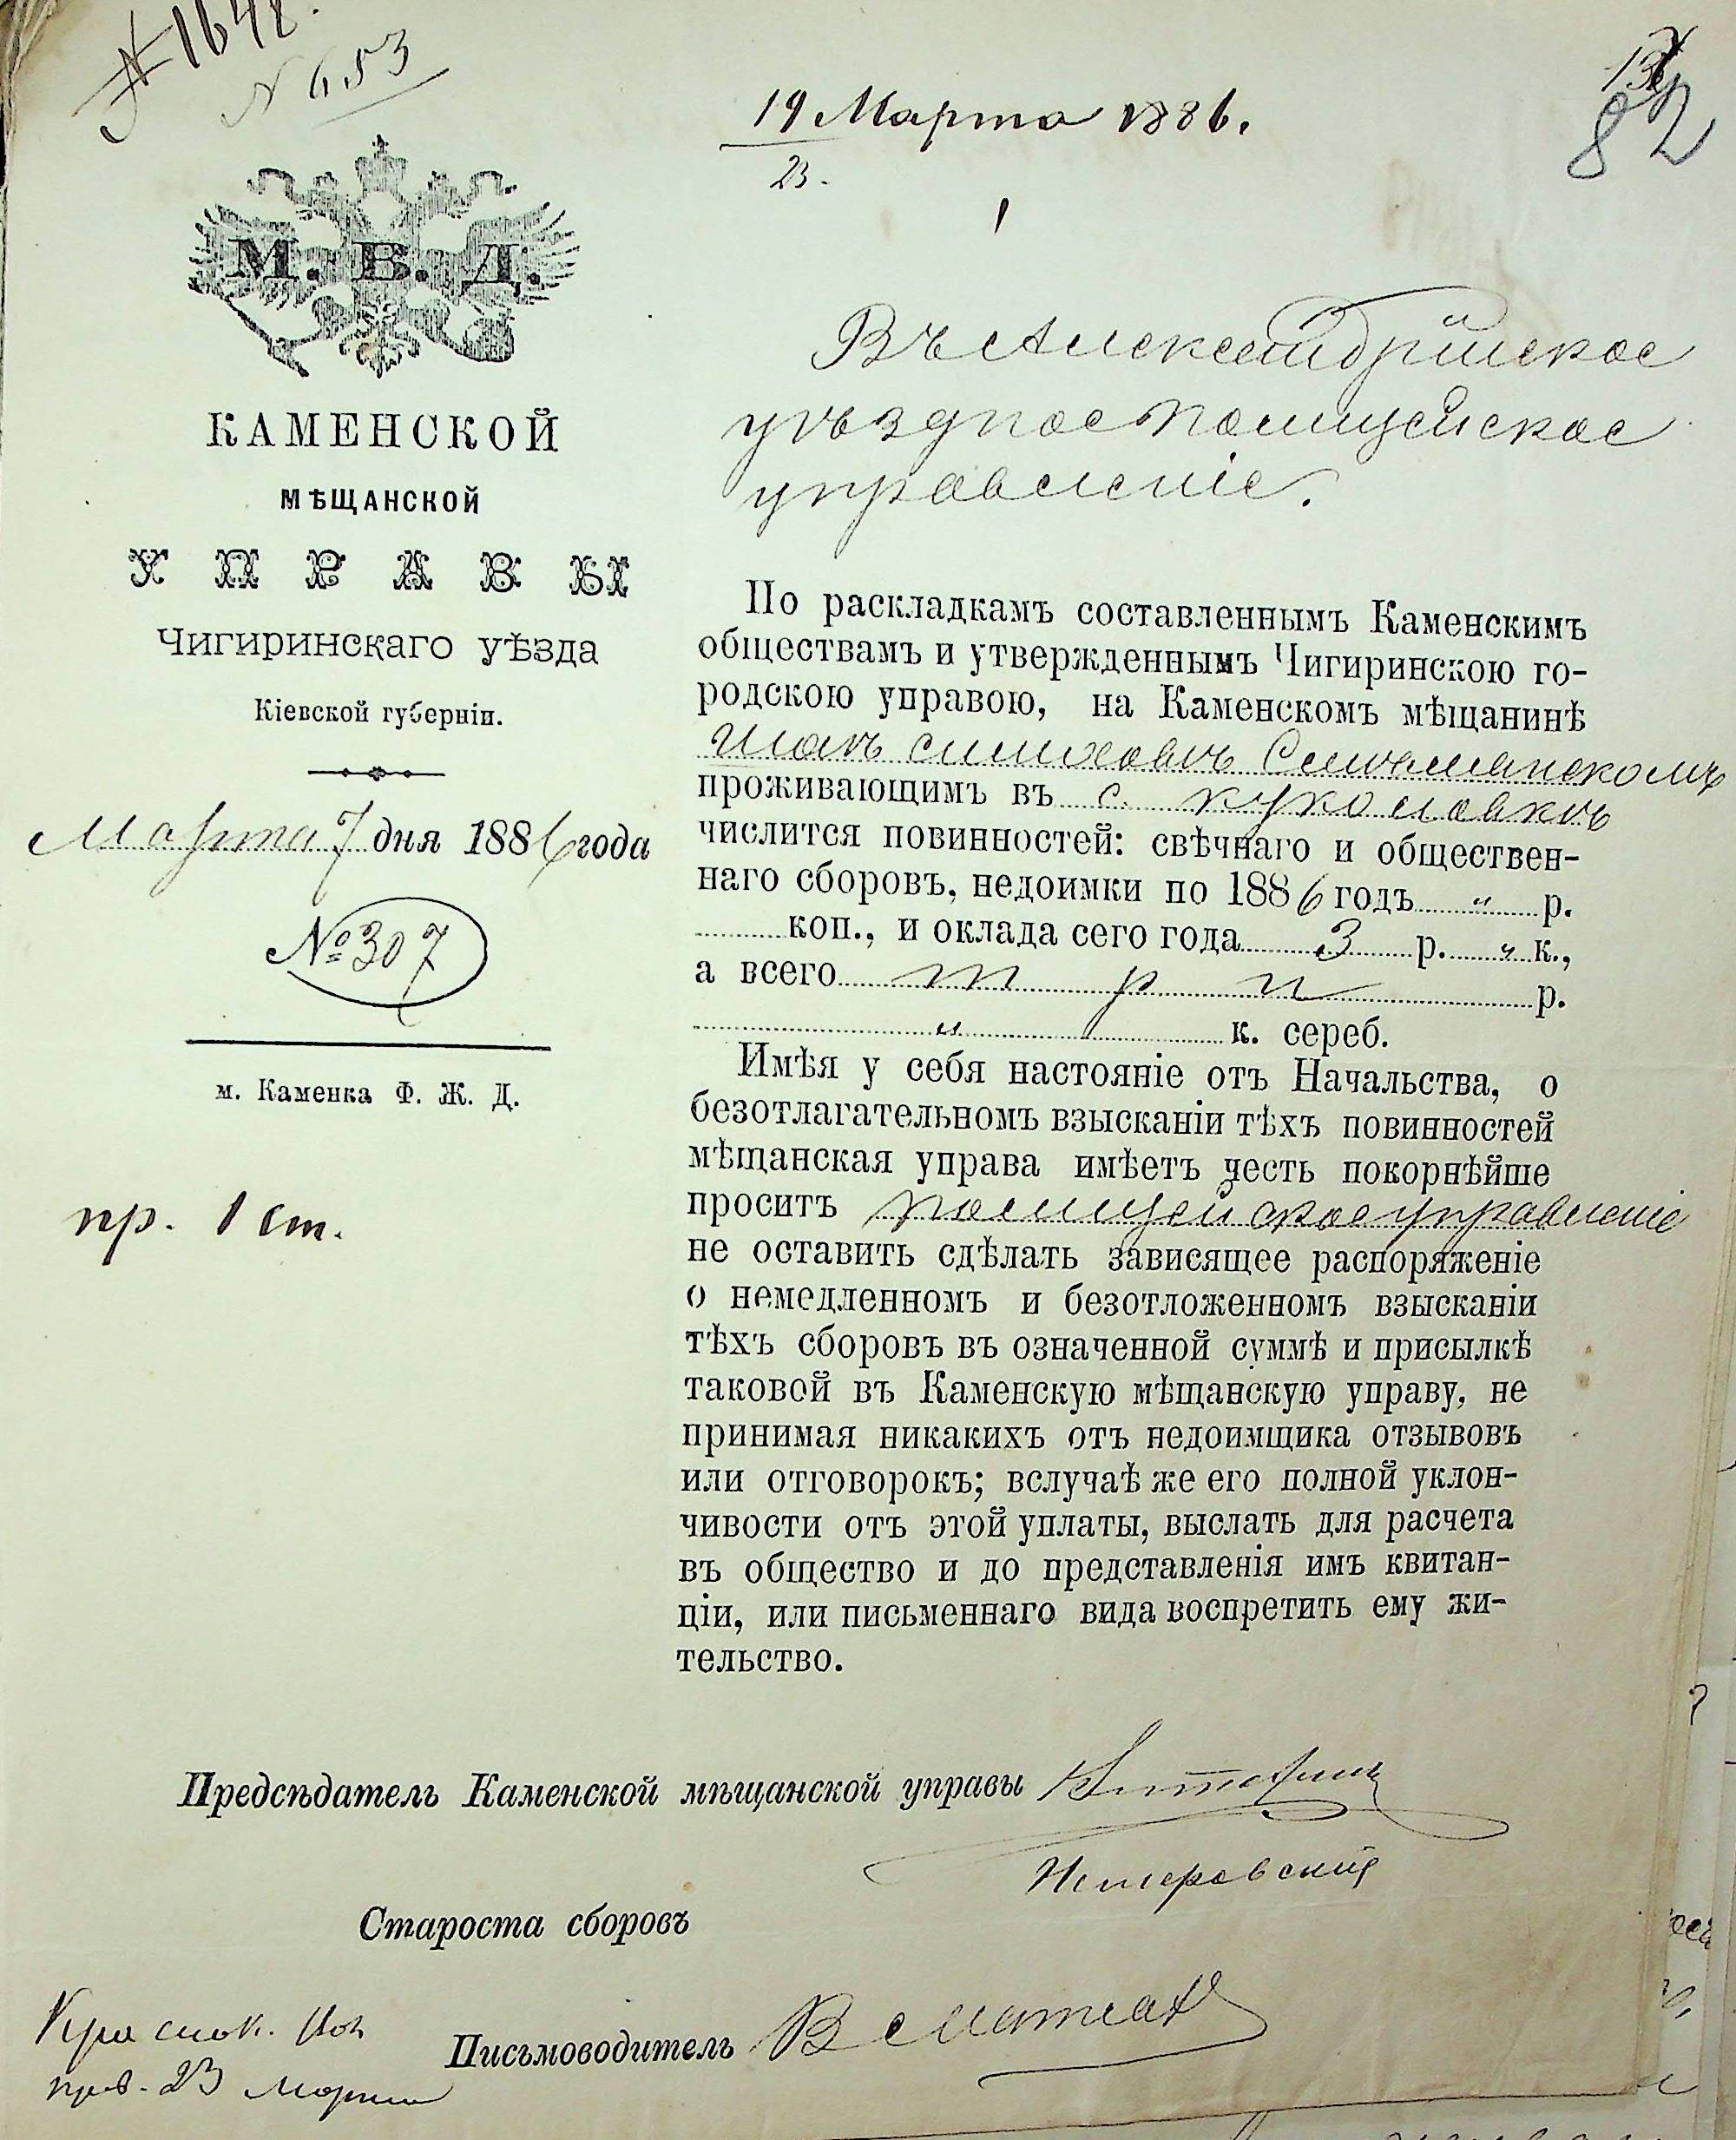 № 1648.
№ 653
19 Марта 1886.
23.
82
М. В. Д.
КАМЕНСКОЙ
МѢЩАНСКОЙ
УПРАВЫ
Чигиринскаго уѣзда
Кіевской губерніи.
Марта 7 дня 1886 года
№ 307
м. Каменка Ф. Ж. Д.
пр. 1 ст.
Въ Александрійское
уѣздное полицейское
управленіе.
По раскладкамъ составленнымъ Каменскимъ
обществамъ и утвержденнымъ Чигиринскою го-
родскою управою, на Каменскомъ мѣщанинѣ
проживающимъ въ с. Куколовкѣ
числится повинностей: свѣчнаго и обществен-
наго сборовъ, недоимки по 1886 годъ " р.
коп., и оклада сего года 3 р. " к.,
а всего три р.
" к. сереб.
Имѣя у себя настояніе отъ Начальства, о
безотлагательномъ взысканіи тѣхъ повинностей
мѣщанская управа имѣетъ честь покорнѣйше
проситъ полицейское управленіе
не оставить сдѣлать зависящее распоряженіе
о немедленномъ и безотложенномъ взысканіи
тѣхъ сборовъ въ означенной суммѣ и присылкѣ
таковой въ Каменскую мѣщанскую управу, не
принимая никакихъ отъ недоимщика отзывовъ
или отговорокъ; вслучаѣ же его полной уклон-
чивости отъ этой уплаты, выслать для расчета
въ общество и до представленія имъ квитан-
ціи, или письменнаго вида воспретить ему жи-
тельство.
Предсѣдатель Каменской мѣщанской управы
Староста сборовъ
Письмоводитель
23 Марта